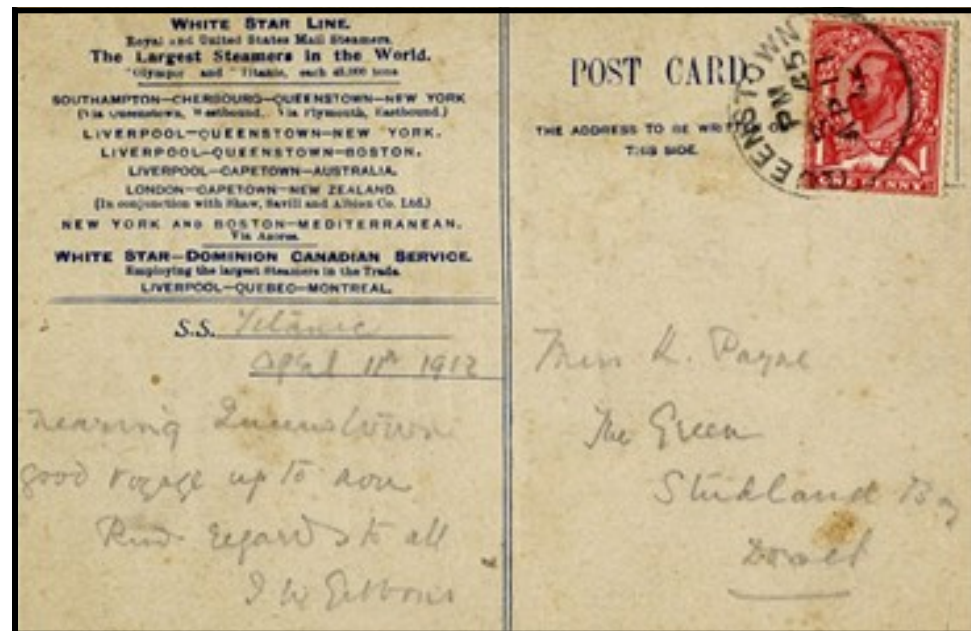 WHITE STAR LINE.
Royal and United States Mail Steamers.
The Largest Steamers in the World.
"Olympic" and "Titanic, each 45,000 tons
SOUTHAMPTON—CHERBOURG—QUEENSTOWN—NEW YORK
(Via Queenstown, Westbound. Via Plymouth, Eastbound.)
LIVERPOOL—QUEENSTOWN—NEW YORK.
LIVERPOOL—QUEENSTOWN—BOSTON.
LIVERPOOL—CAPETOWN—AUSTRALIA.
LONDON—CAPETOWN—NEW ZEALAND.
(In conjunction with Shaw, Savill and Albion Co. Ltd.)
NEW YORK AND BOSTON—MEDITERRANEAN.
Via Azores.
WHITE STAR—DOMINION CANADIAN SERVICE.
Employing the largest Steamers in the Trade.
LIVERPOOL—QUEBEC—MONTREAL.
S.S. Titanic
April 11th 1912
nearing Queenstown
good voyage up to now
Kind regards to all
J W Gibbons
POST CARD
THE ADDRESS TO BE WRITTEN ON
THIS SIDE.
QUEENSTOWN
PM
AP 11
ONE PENNY
1 1
Miss K. Payne
The Green
Studland Bay
Dorset